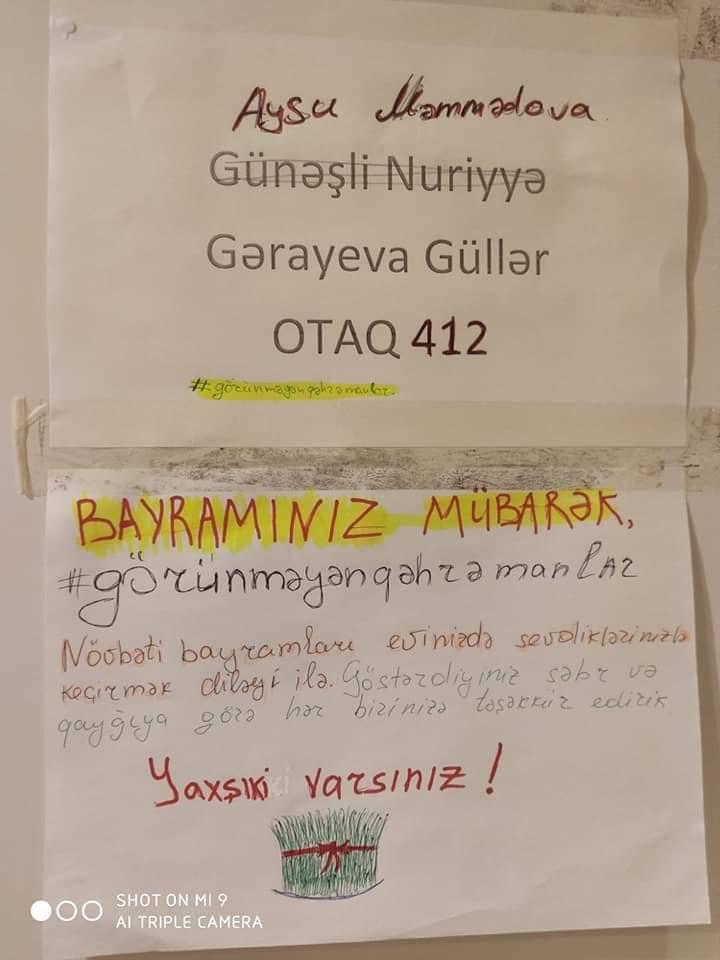 Aysu Məmmədova
Günəşli Nuriyyə
Gərayeva Güllər
OTAQ 412
#görünməyənqəhrəmanlar.
BAYRAMINIZ MÜBARƏK,
#görünməyənqəhrəmanlar
Növbəti bayramları evinizdə sevdiklərinizlə
keçirmək diləyi ilə. Göstərdiyiniz səbr və
qayğıya görə hər birinizə təşəkkür edirik
Yaxşıki varsınız!
SHOT ON MI 9
AI TRIPLE CAMERA